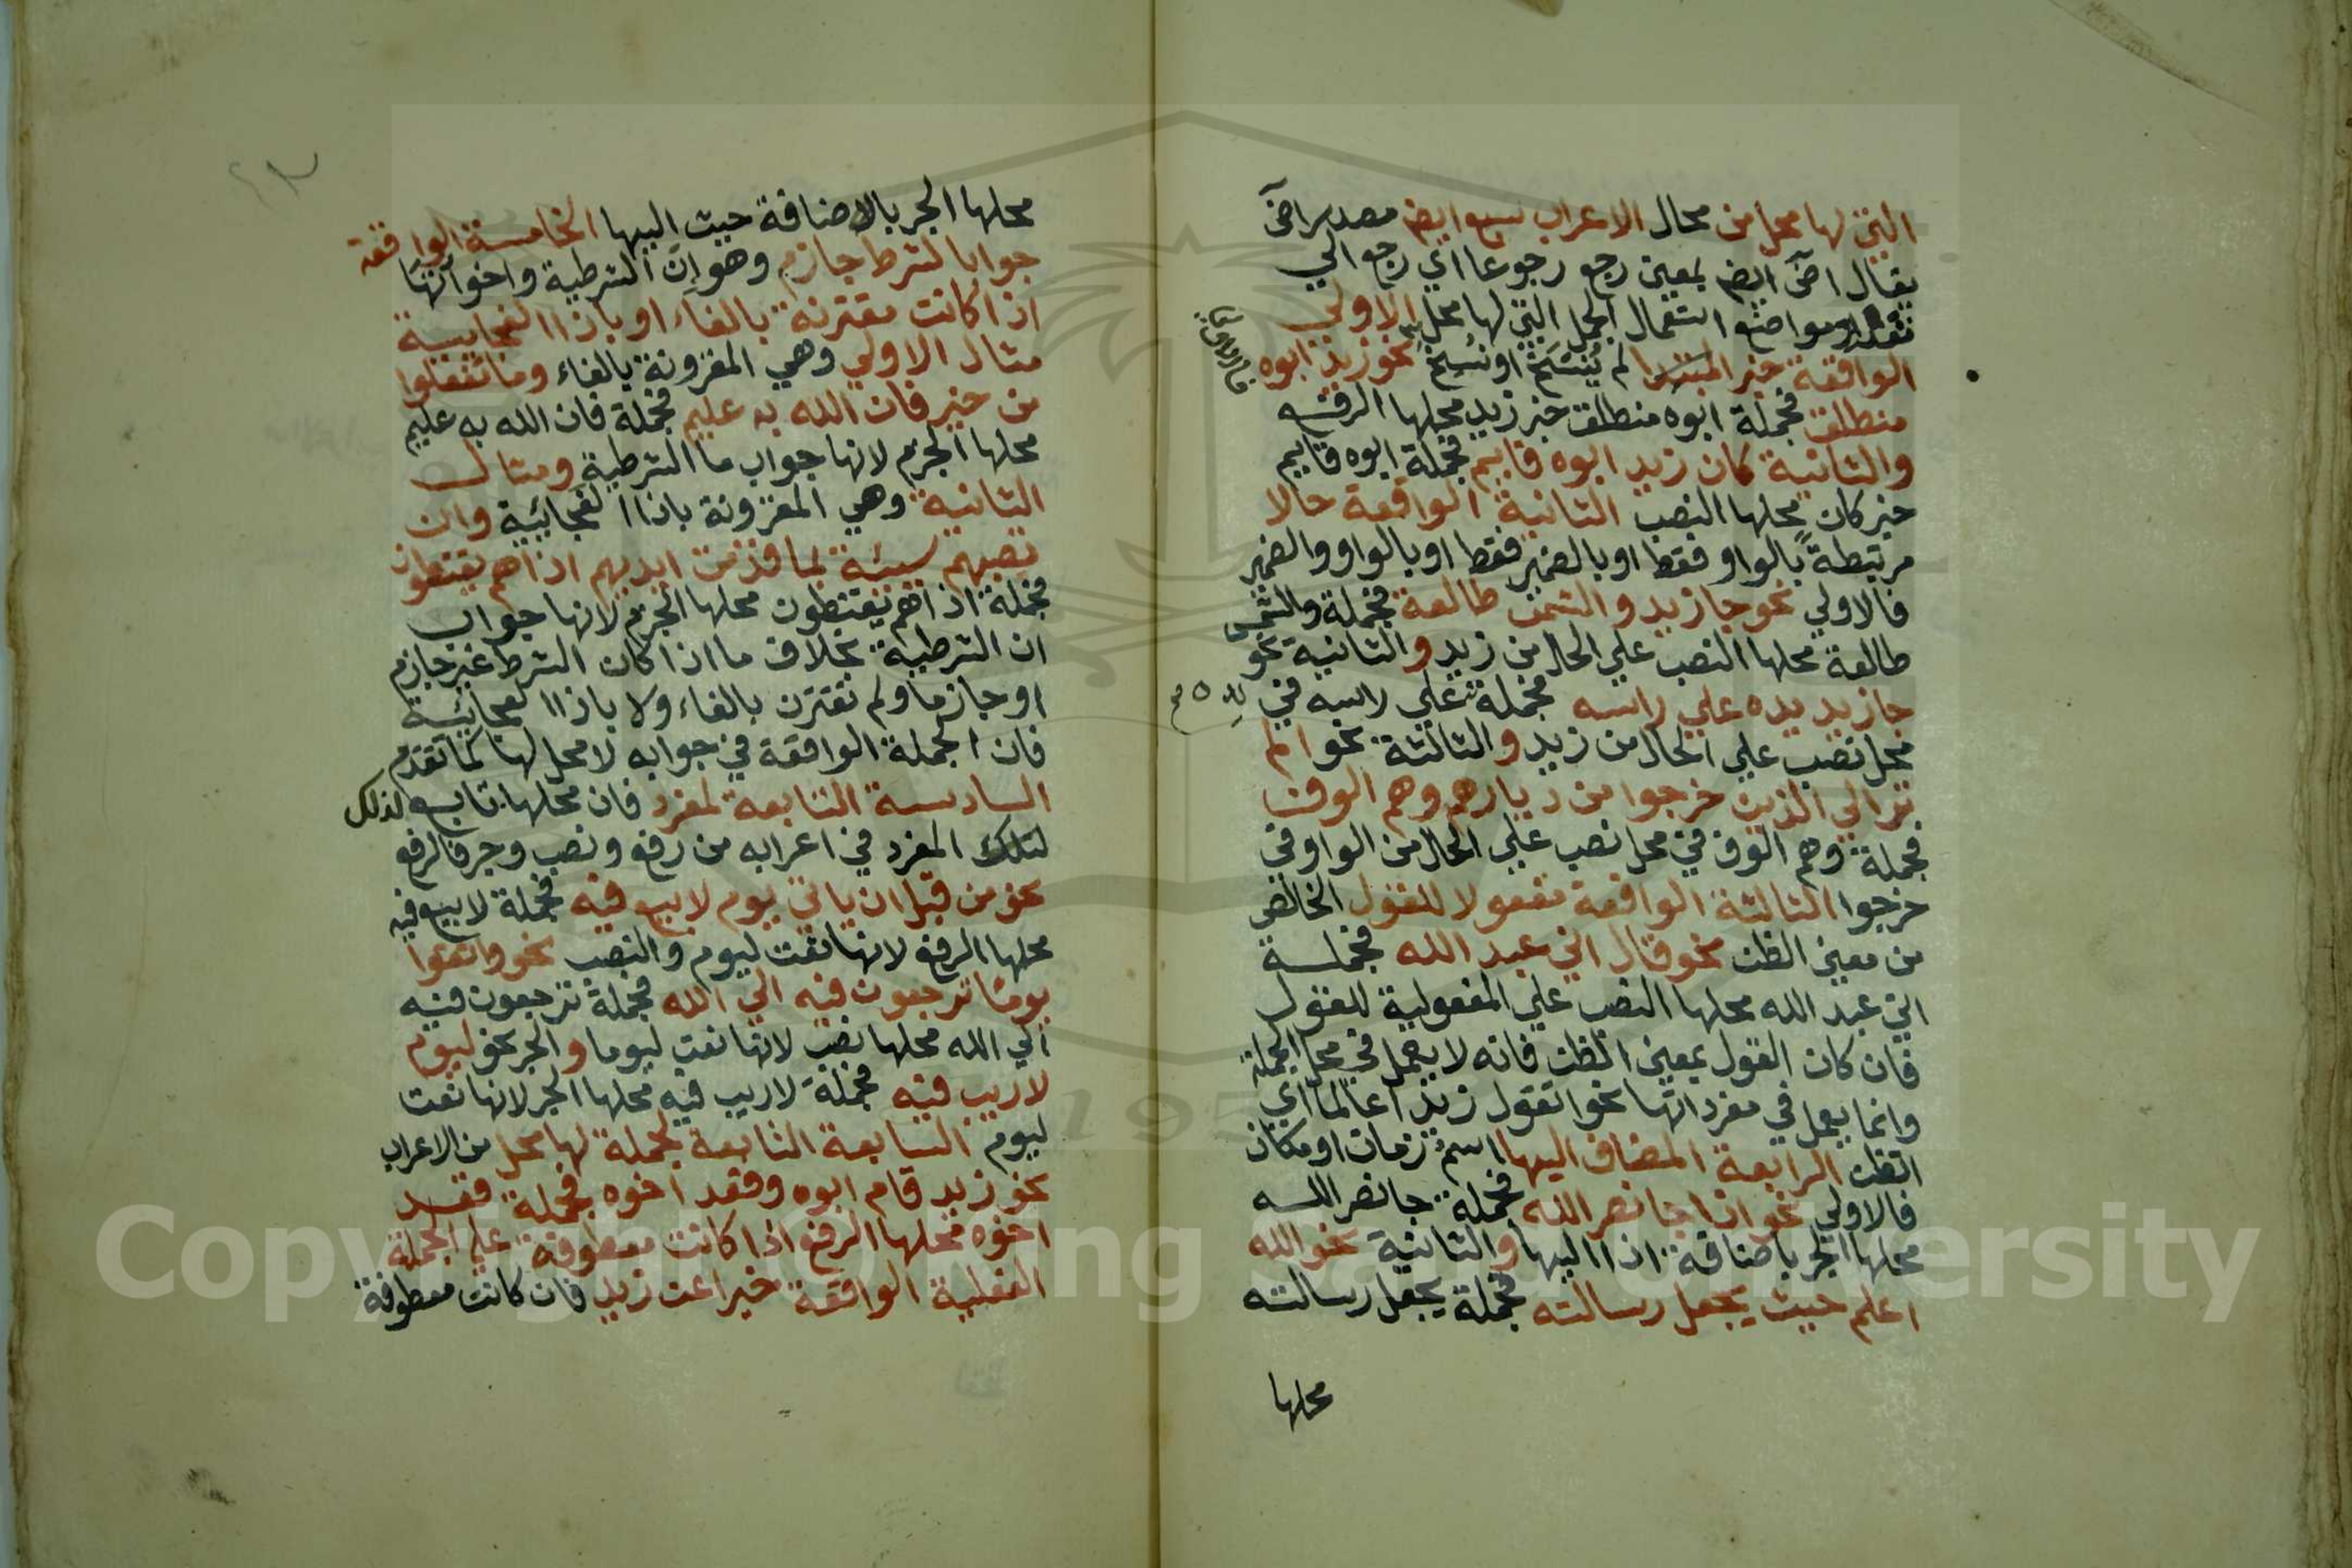 التي لها محل من محال الاعراب سبع ايضا مصدر اضَ
يقال اضَ ايضا بمعني رجع رجوعا اي رجع الي
مواضع استعمال الجمل التي لها محل الاولي
الواقعة خبر المبتدا لم يُنسَخ او نُسِخ نحو زيد ابوه
منطلق فجملة ابوه منطلق خبر زيد محلها الرفع
والثانية كان زيد ابوه قايم فجملة ابوه قايم
خبر كان محلها النصب الثانية الواقعة حالا
مرتبطةً بالواو فقط او بالضمير فقط او بالواو والضمير
فالاولي نحو جا زيد والشمس طالعة فجملة والشمس
طالعة محلها النصب علي الحال من زيد والثانية نحو
جا زيد يده علي راسه فجملة يده علي راسه في
محل نصب علي الحال من زيد والثالثة نحو الم
تر الي الذين خرجوا من ديارهم وهم الوف
فجملة وهم الوف في محل نصب علي الحال من الواو في
خرجوا الثالثة الواقعة مفعولا للقول الخالص
من معني الظن نحو قال اني عبد الله فجملة
اني عبد الله محلها النصب علي المفعولية للقول
فان كان القول بمعني الظن فانه لا يعمل في محل الجملة
وانما يعمل في مفرداتها نحو اتقول زيدا عالما اي
اتظن الرابعة المضاف اليها اسمُ زمان او مكان
فالاولي نحو اذا جا نصر الله فجملة جا نصر الله
محلها الجر باضافة اذا اليها والثانية نحو الله
اعلم حيث يجعل رسالته فجملة يجعل رسالته
محلها
محلها الجر بالاضافة حيث اليها الخامسة الواقعة
جوابا لشرط جازم وهو اِنْ الشرطية واخواتها
اذا كانت مقترنة بالفاء او باذا الفجايية
مثال الاولي وهي المقرونة بالفاء وما تفعلوا
من خير فان الله به عليم فجملة فان الله به عليم
محلها الجزم لانها جواب ما الشرطية ومثال
الثانية وهي المقرونة باذا الفجائية وان
تصبهم سيئة بما قدمت ايديهم اذا هم يقنطون
فجملة اذا هم يقنطون محلها الجزم لانها جواب
ان الشرطية بخلاف ما اذا كان الشرط غير جازم
او جازما ولم تقترن بالفاء ولا باذا الفجائية
فان الجملة الواقعة في جوابه لا محل لها كما تقدم
السادسة التابعة لمفرد فان محلها تابع لذلك
المفرد في اعرابه من رفع ونصب وجر فالرفع
نحو من قبل ان ياتي يوم لا بيع فيه فجملة لا بيع فيه
محلها الرفع لانها نعت ليوم والنصب نحو واتقوا
يوما ترجعون فيه الي الله فجملة ترجعون فيه
الي الله محلها نصب لانها نعت ليوما والجر نحو ليوم
لا ريب فيه فجملة لا ريب فيه محلها الجر لانها نعت
ليوم السابعة التابعة لجملة لها محل من الاعراب
نحو زيد قام ابوه وقعد اخوه فجملة قعد
اخوه محلها الرفع اذا كانت معطوفة علي الجملة
الفعلية الواقعة خبرا عن زيد فان كانت معطوفة
Copyright © King Saud University
195